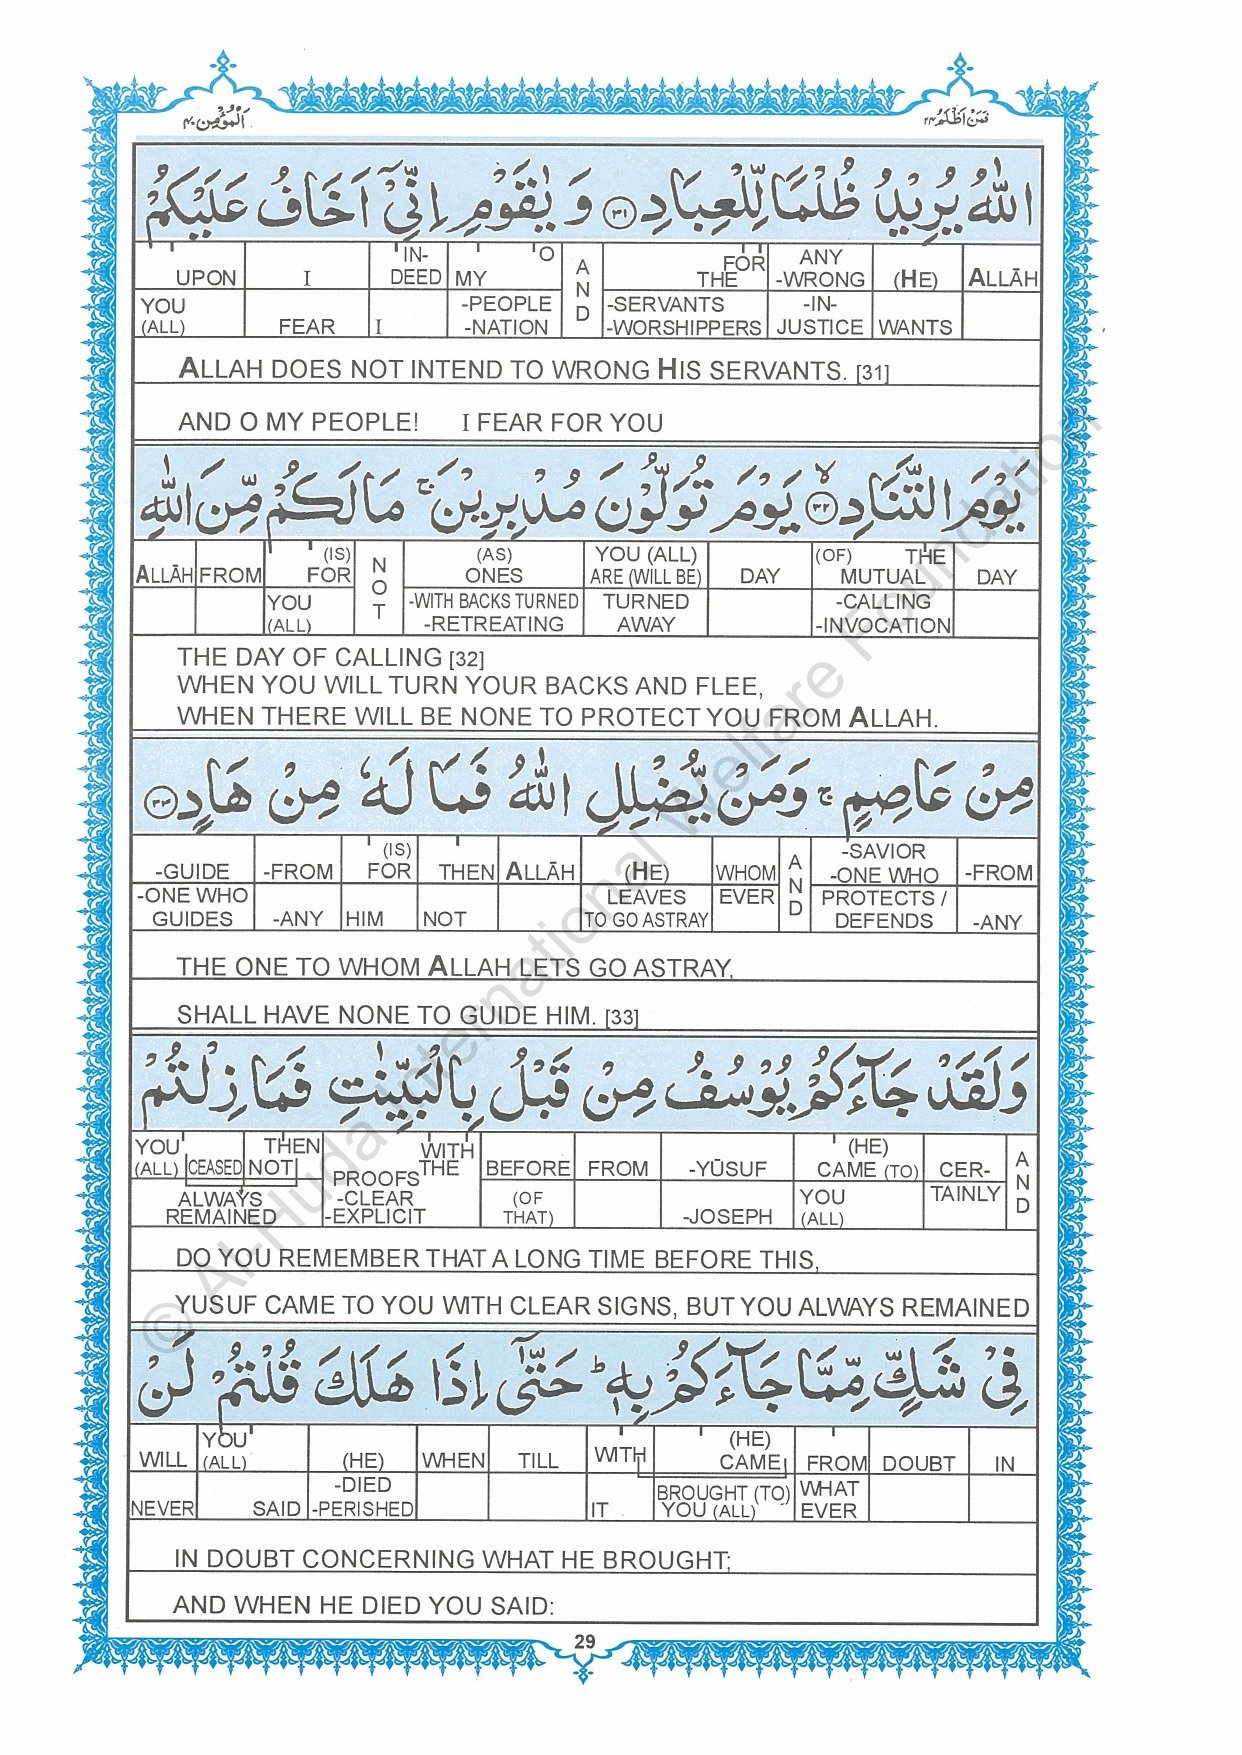 اَلْمُؤْمِن ۴۰
فَمَنْ اَظْلَمُ ۲۴
اللّٰهُ يُرِيْدُ ظُلْمًا لِّلْعِبَادِ ﴿۳۱﴾ وَ يٰقَوْمِ اِنِّيْٓ اَخَافُ عَلَيْكُمْ
UPON I IN- O A FOR ANY (HE) ALLĀH
DEED MY N THE -WRONG
YOU -PEOPLE D -SERVANTS -IN-
(ALL) FEAR I -NATION -WORSHIPPERS JUSTICE WANTS
ALLAH DOES NOT INTEND TO WRONG HIS SERVANTS. [31]
AND O MY PEOPLE! I FEAR FOR YOU
يَوْمَ التَّنَادِ ﴿۳۲﴾ۙ يَوْمَ تُوَلُّوْنَ مُدْبِرِيْنَ ۚ مَا لَكُمْ مِّنَ اللّٰهِ
ALLĀH FROM (IS) N (AS) YOU (ALL) DAY (OF) THE DAY
FOR O ONES ARE (WILL BE) MUTUAL
YOU T -WITH BACKS TURNED TURNED -CALLING
(ALL) -RETREATING AWAY -INVOCATION
THE DAY OF CALLING [32]
WHEN YOU WILL TURN YOUR BACKS AND FLEE,
WHEN THERE WILL BE NONE TO PROTECT YOU FROM ALLAH.
مِنْ عَاصِمٍ ۚ وَمَنْ يُّضْلِلِ اللّٰهُ فَمَا لَهٗ مِنْ هَادٍ ﴿۳۳﴾
-GUIDE -FROM (IS) THEN ALLĀH (HE) WHOM A -SAVIOR -FROM
FOR N -ONE WHO
-ONE WHO LEAVES EVER D PROTECTS /
GUIDES -ANY HIM NOT TO GO ASTRAY DEFENDS -ANY
THE ONE TO WHOM ALLAH LETS GO ASTRAY,
SHALL HAVE NONE TO GUIDE HIM. [33]
وَلَقَدْ جَآءَكُمْ يُوْسُفُ مِنْ قَبْلُ بِالْبَيِّنٰتِ فَمَا زِلْتُمْ
YOU THEN WITH BEFORE FROM -YŪSUF (HE) CER- A
(ALL) CEASED NOT PROOFS THE CAME (TO) N
ALWAYS -CLEAR (OF YOU TAINLY D
REMAINED -EXPLICIT THAT) -JOSEPH (ALL)
DO YOU REMEMBER THAT A LONG TIME BEFORE THIS,
YUSUF CAME TO YOU WITH CLEAR SIGNS, BUT YOU ALWAYS REMAINED
فِيْ شَكٍّ مِّمَّا جَآءَكُمْ بِهٖ ؕ حَتّٰٓى اِذَا هَلَكَ قُلْتُمْ لَنْ
WILL YOU (HE) WHEN TILL WITH (HE) FROM DOUBT IN
(ALL) CAME
-DIED BROUGHT (TO) WHAT
NEVER SAID -PERISHED IT YOU (ALL) EVER
IN DOUBT CONCERNING WHAT HE BROUGHT;
AND WHEN HE DIED YOU SAID:
29
© Al-Huda International Welfare Foundation